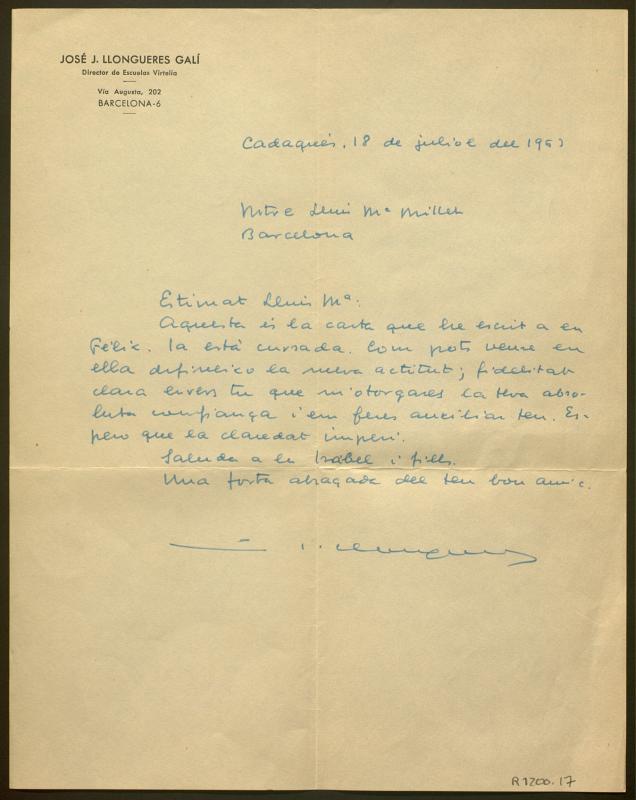 JOSÉ J. LLONGUERES GALÍ
Director de Escuelas Virtelia
Vía Augusta, 202
BARCELONA-6
Cadaqués, 18 de juliol del
Mtre Lluis Mª Millet
Barcelona
Estimat Lluis Mª:
Aquesta és la carta que he escrit a en
Fèlix. Ja está cursada. Com pots veure en
ella defineixo la meva actitut; fidelitat
clara envers tu que m'otorgares la teva abso-
luta confiança i em feres auxiliar teu. Es-
pero que la claredat imperi.
Saluda a la Isabel i fills.
Una forta abraçada del teu bon amic.
J. Llongueres
R1200.17